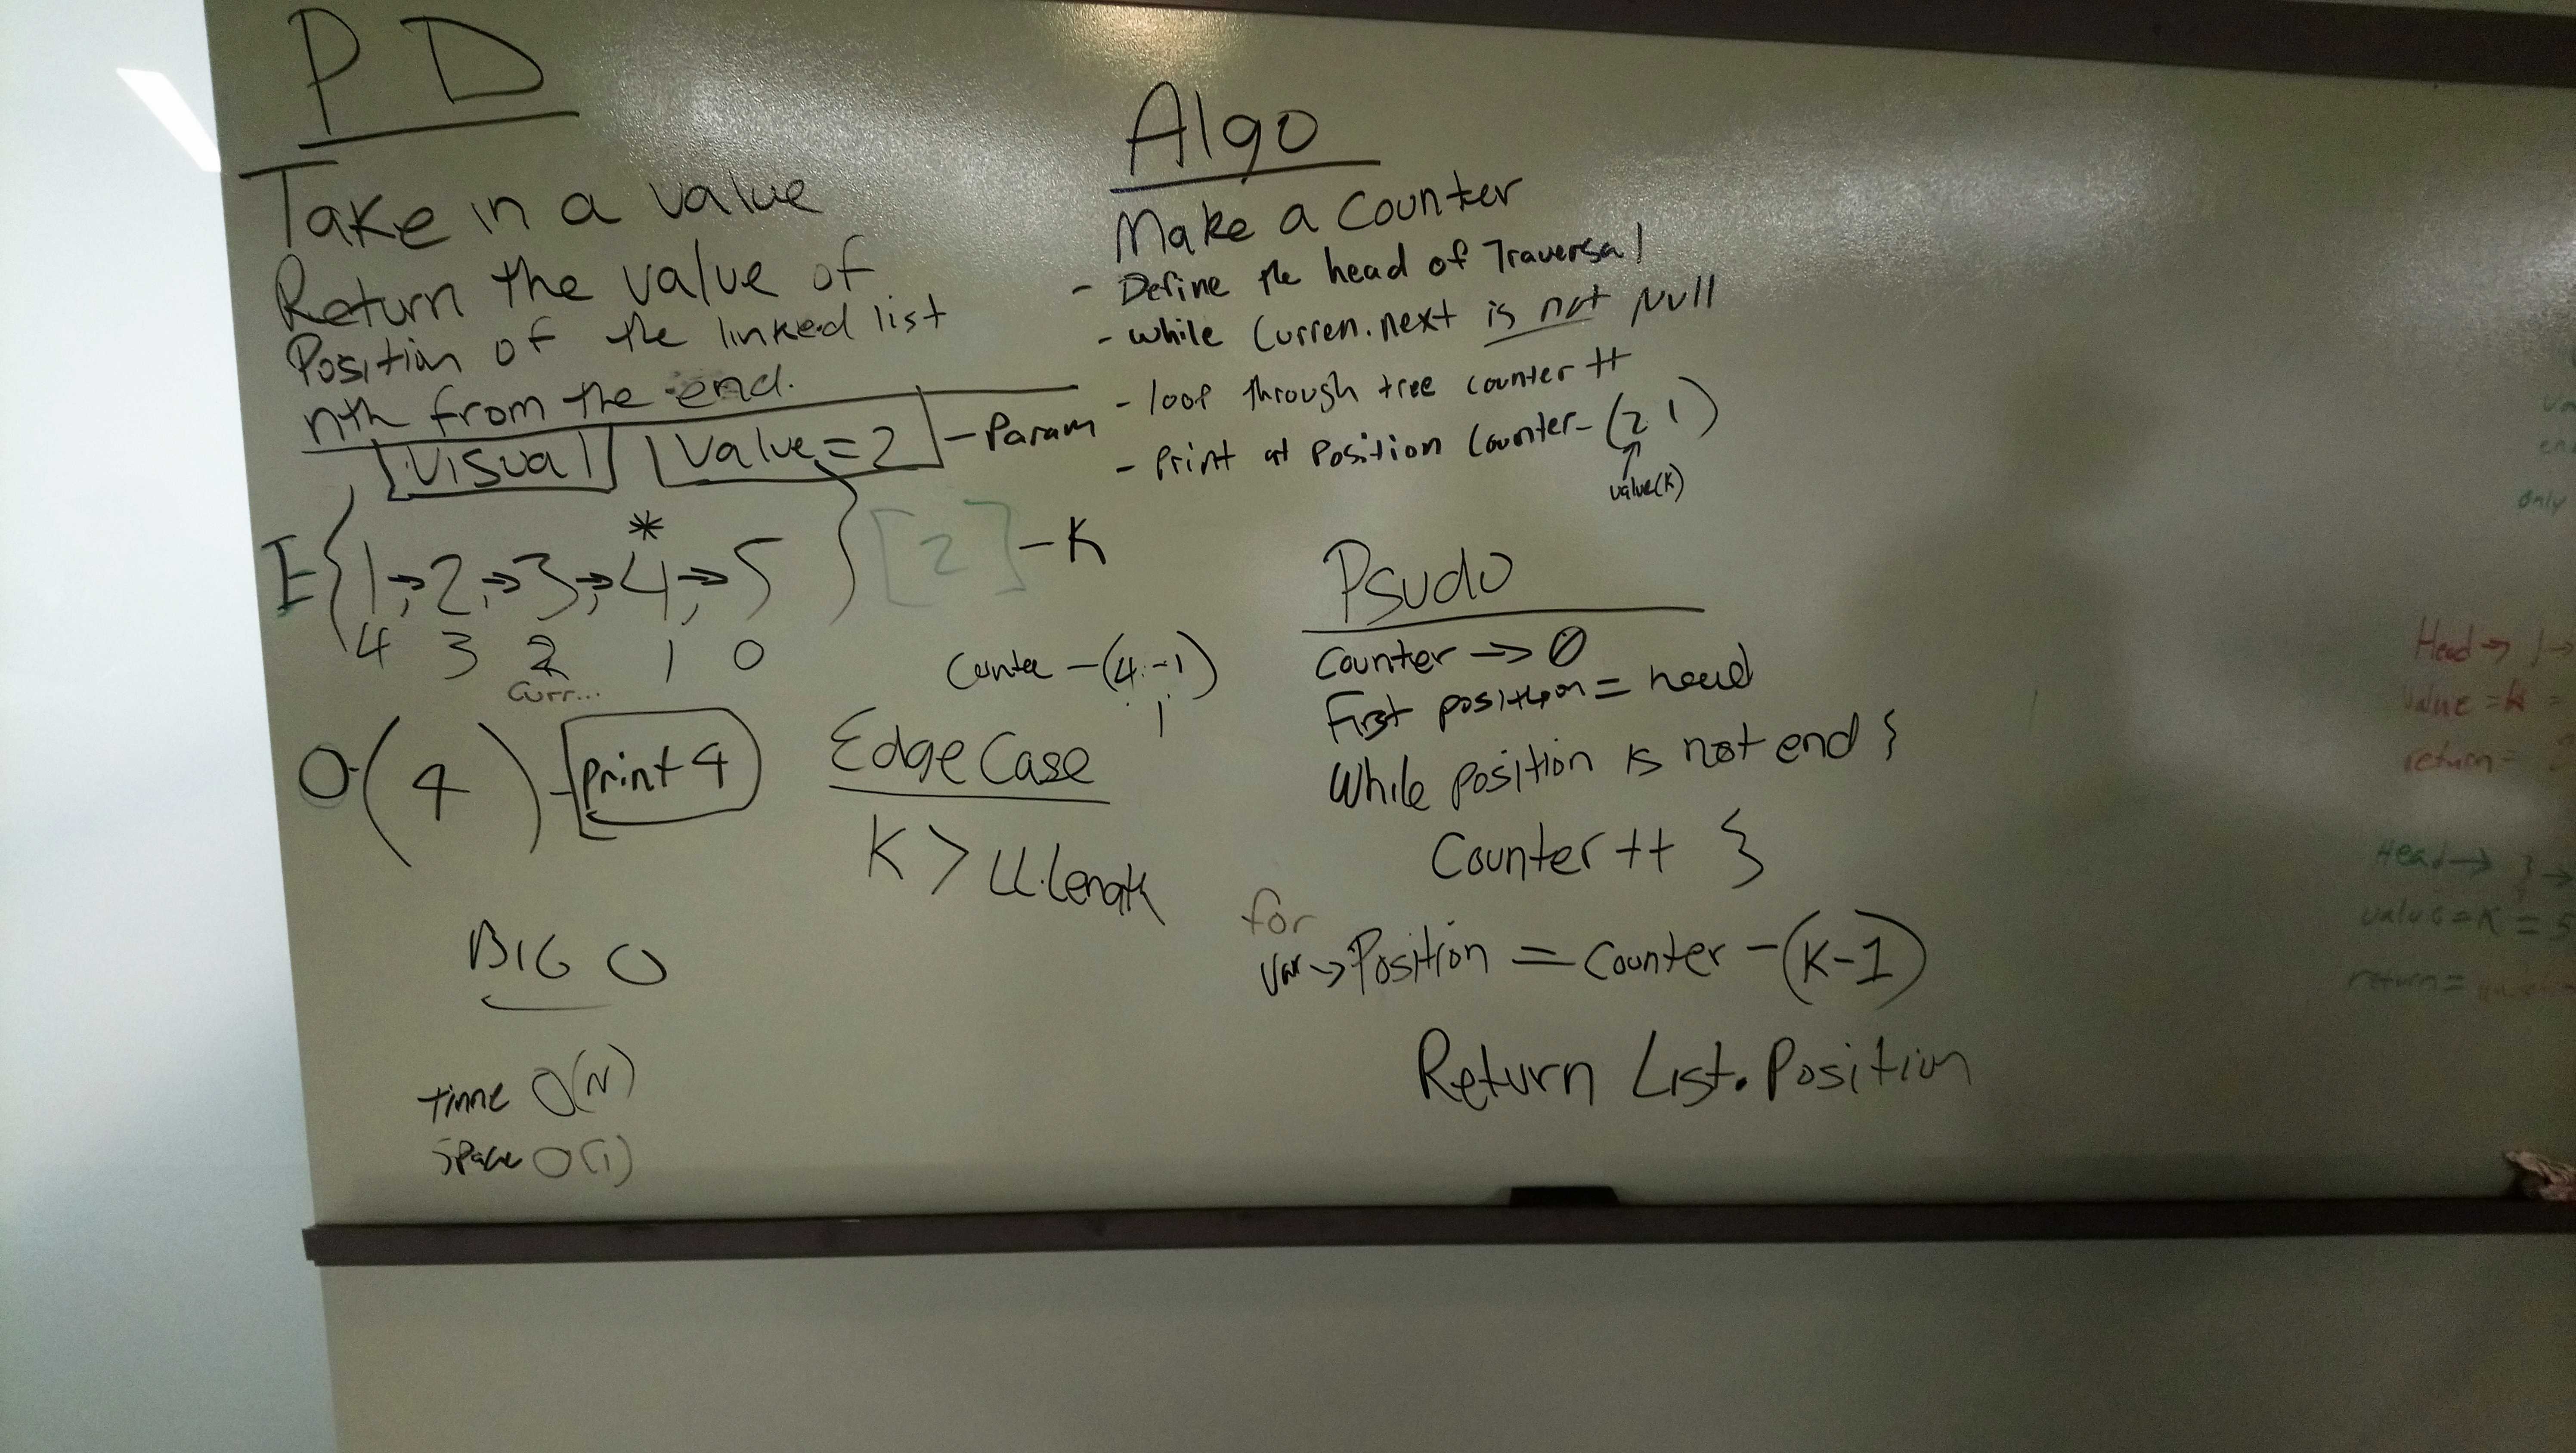 PD
Take in a value
Return the value of
Position of the linked list
nth from the end.
Visual
Value = 2
- Param
I {1,→2,→3,→4,→5} [2] - K
*
4 3 2 1 0
Curr...
Counter - (4 - 1)
1
O-(4) - print 4
Edge Case
K > LL.Length
BIG O
time O(N)
space O(1)
Algo
Make a Counter
- Define the head of Traversal
- while Curren.next is not Null
- loop through tree counter ++
- Print at Position Counter - (2 1)
value(K)
Psudo
Counter → 0
First position = head
While position is not end {
Counter ++ }
for
var → Position = Counter - (K-1)
Return List.Position
only
Head → 1 →
Value = K =
return =
Head → } →
value = K = 5
return =